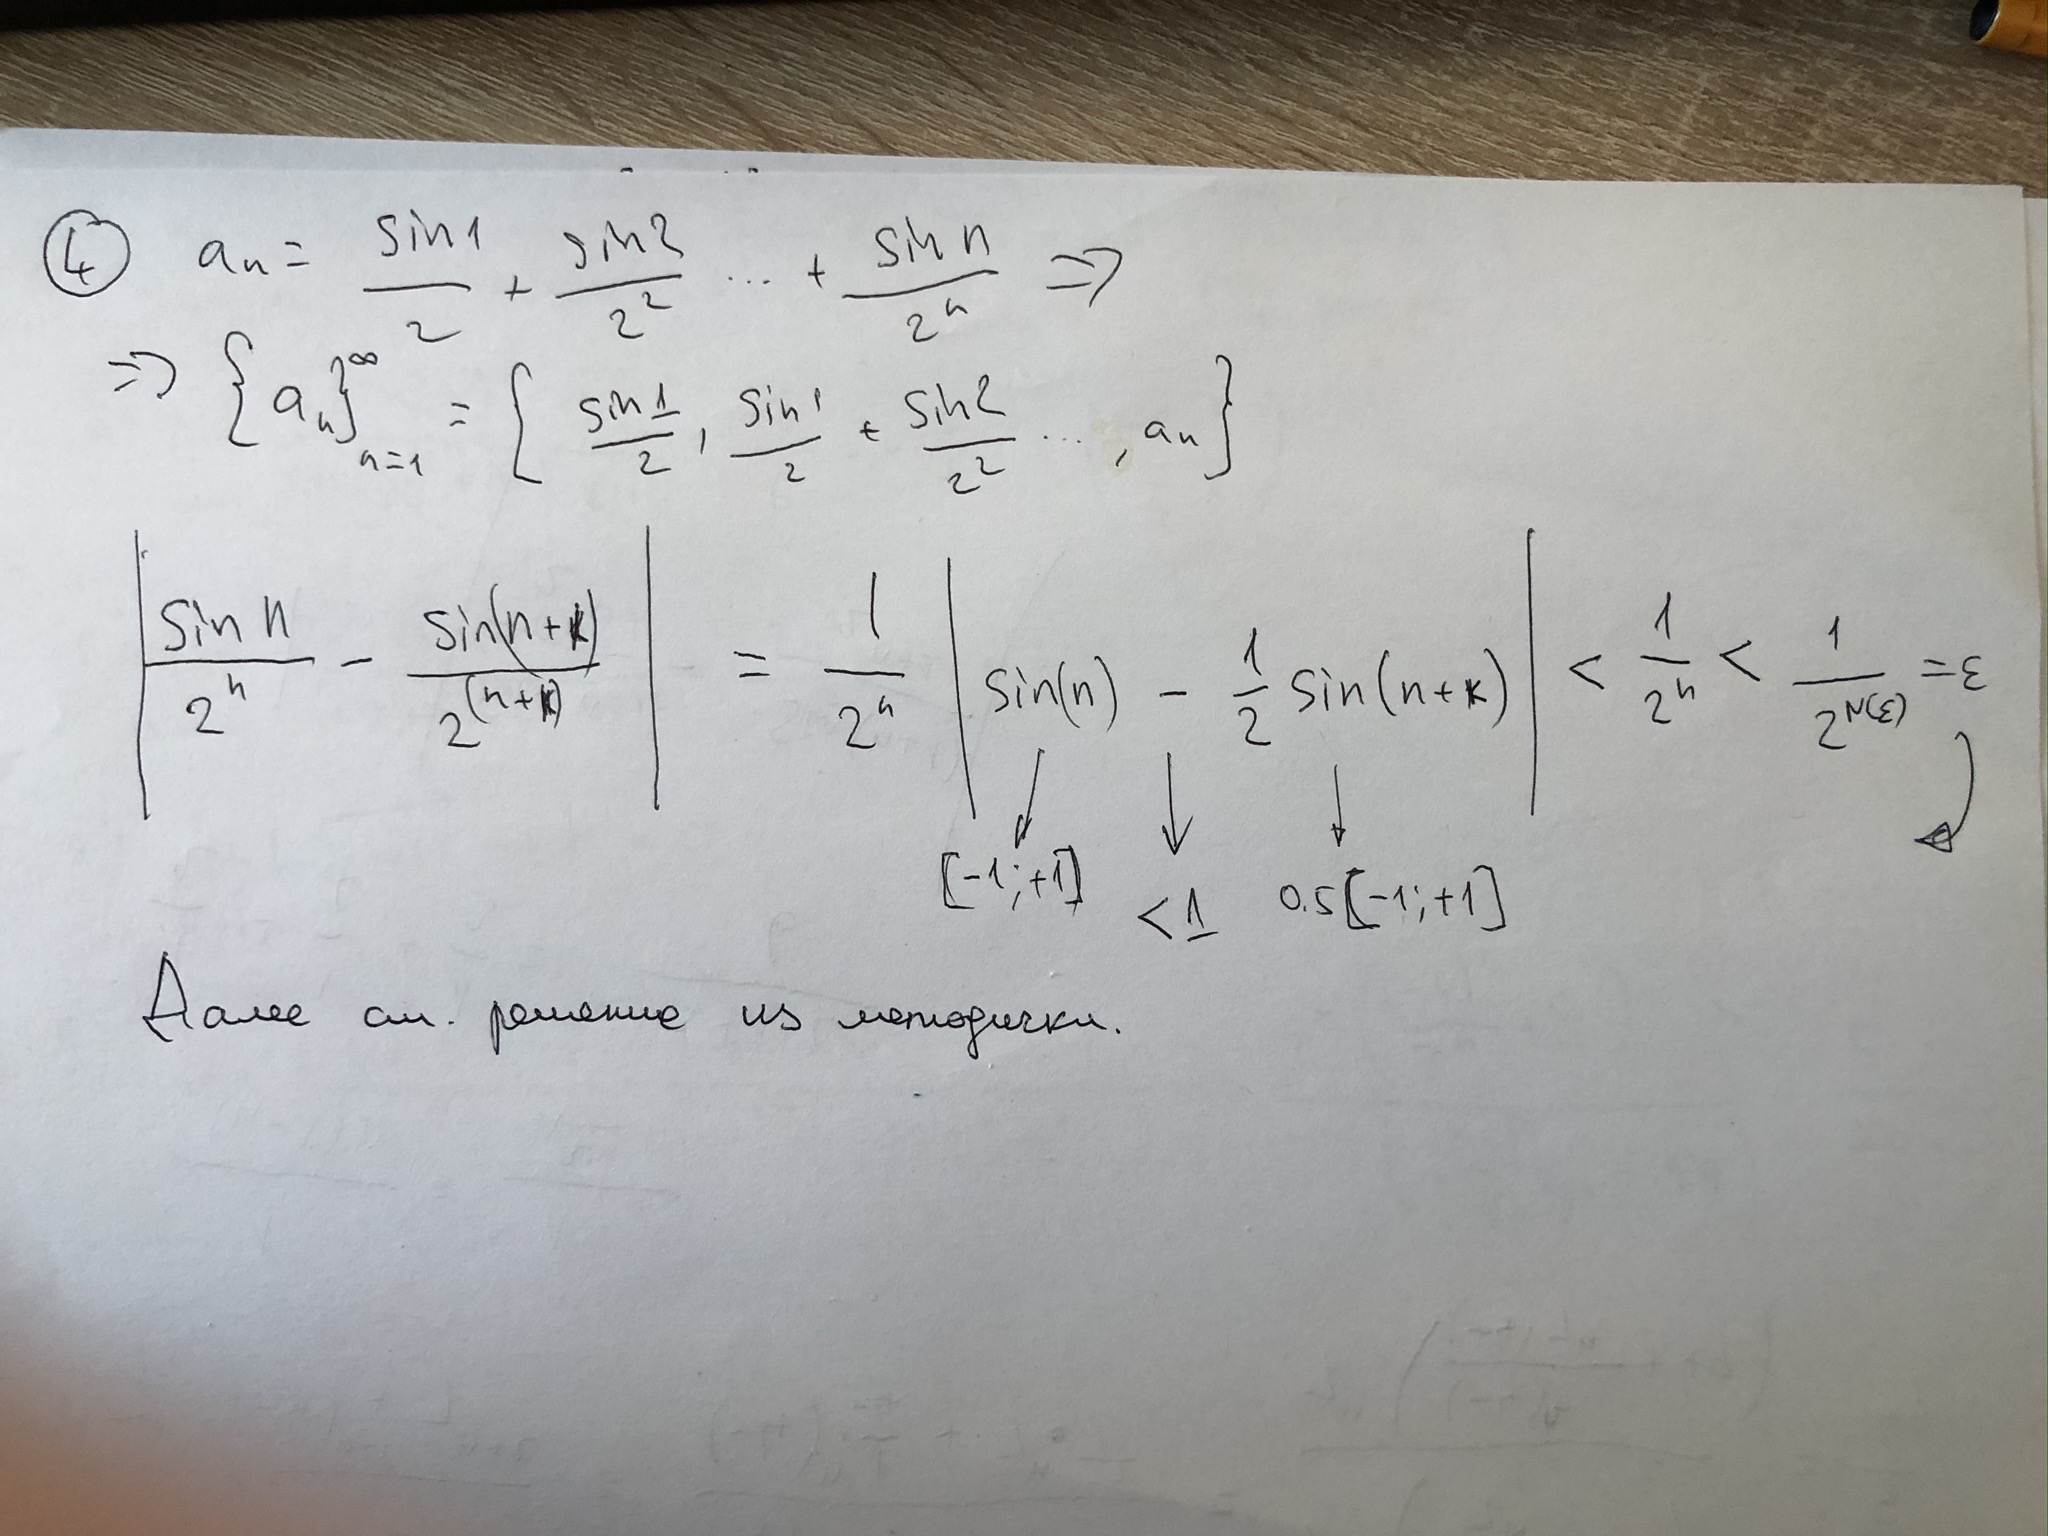 ④ aₙ = sin1/2 + sin2/2² ... + sin n/2ⁿ ⇒
⇒ {aₙ}∞ₙ₌₁ = { sin1/2, sin1/2 + sin2/2² ... , aₙ }
| sin n/2ⁿ - sin(n+k)/2⁽ⁿ⁺ᵏ⁾ | = 1/2ⁿ | sin(n) - 1/2 sin(n+k) | < 1/2ⁿ < 1/2^N(ε) = ε
[-1;+1] <1 0.5[-1;+1]
Далее см. решение из методички.